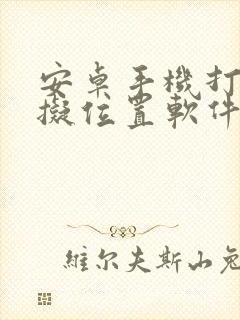 安卓手機打
擬位置軟件
維尔夫斯山兔